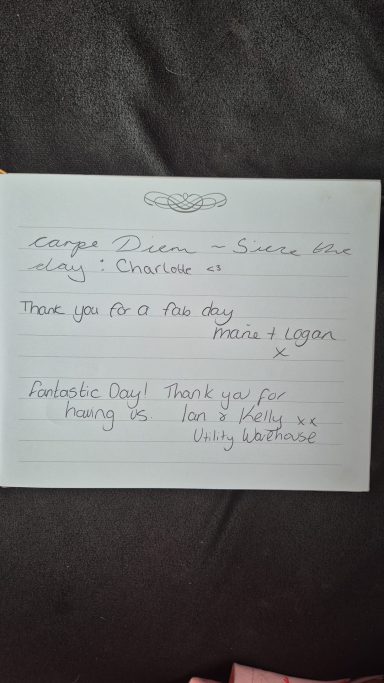 Carpe Diem ~ Sieze the
day : Charlotte <3
Thank you for a fab day
Marie + Logan
x
Fantastic Day! Thank you for
having us. Ian & Kelly xx
Utility Warehouse